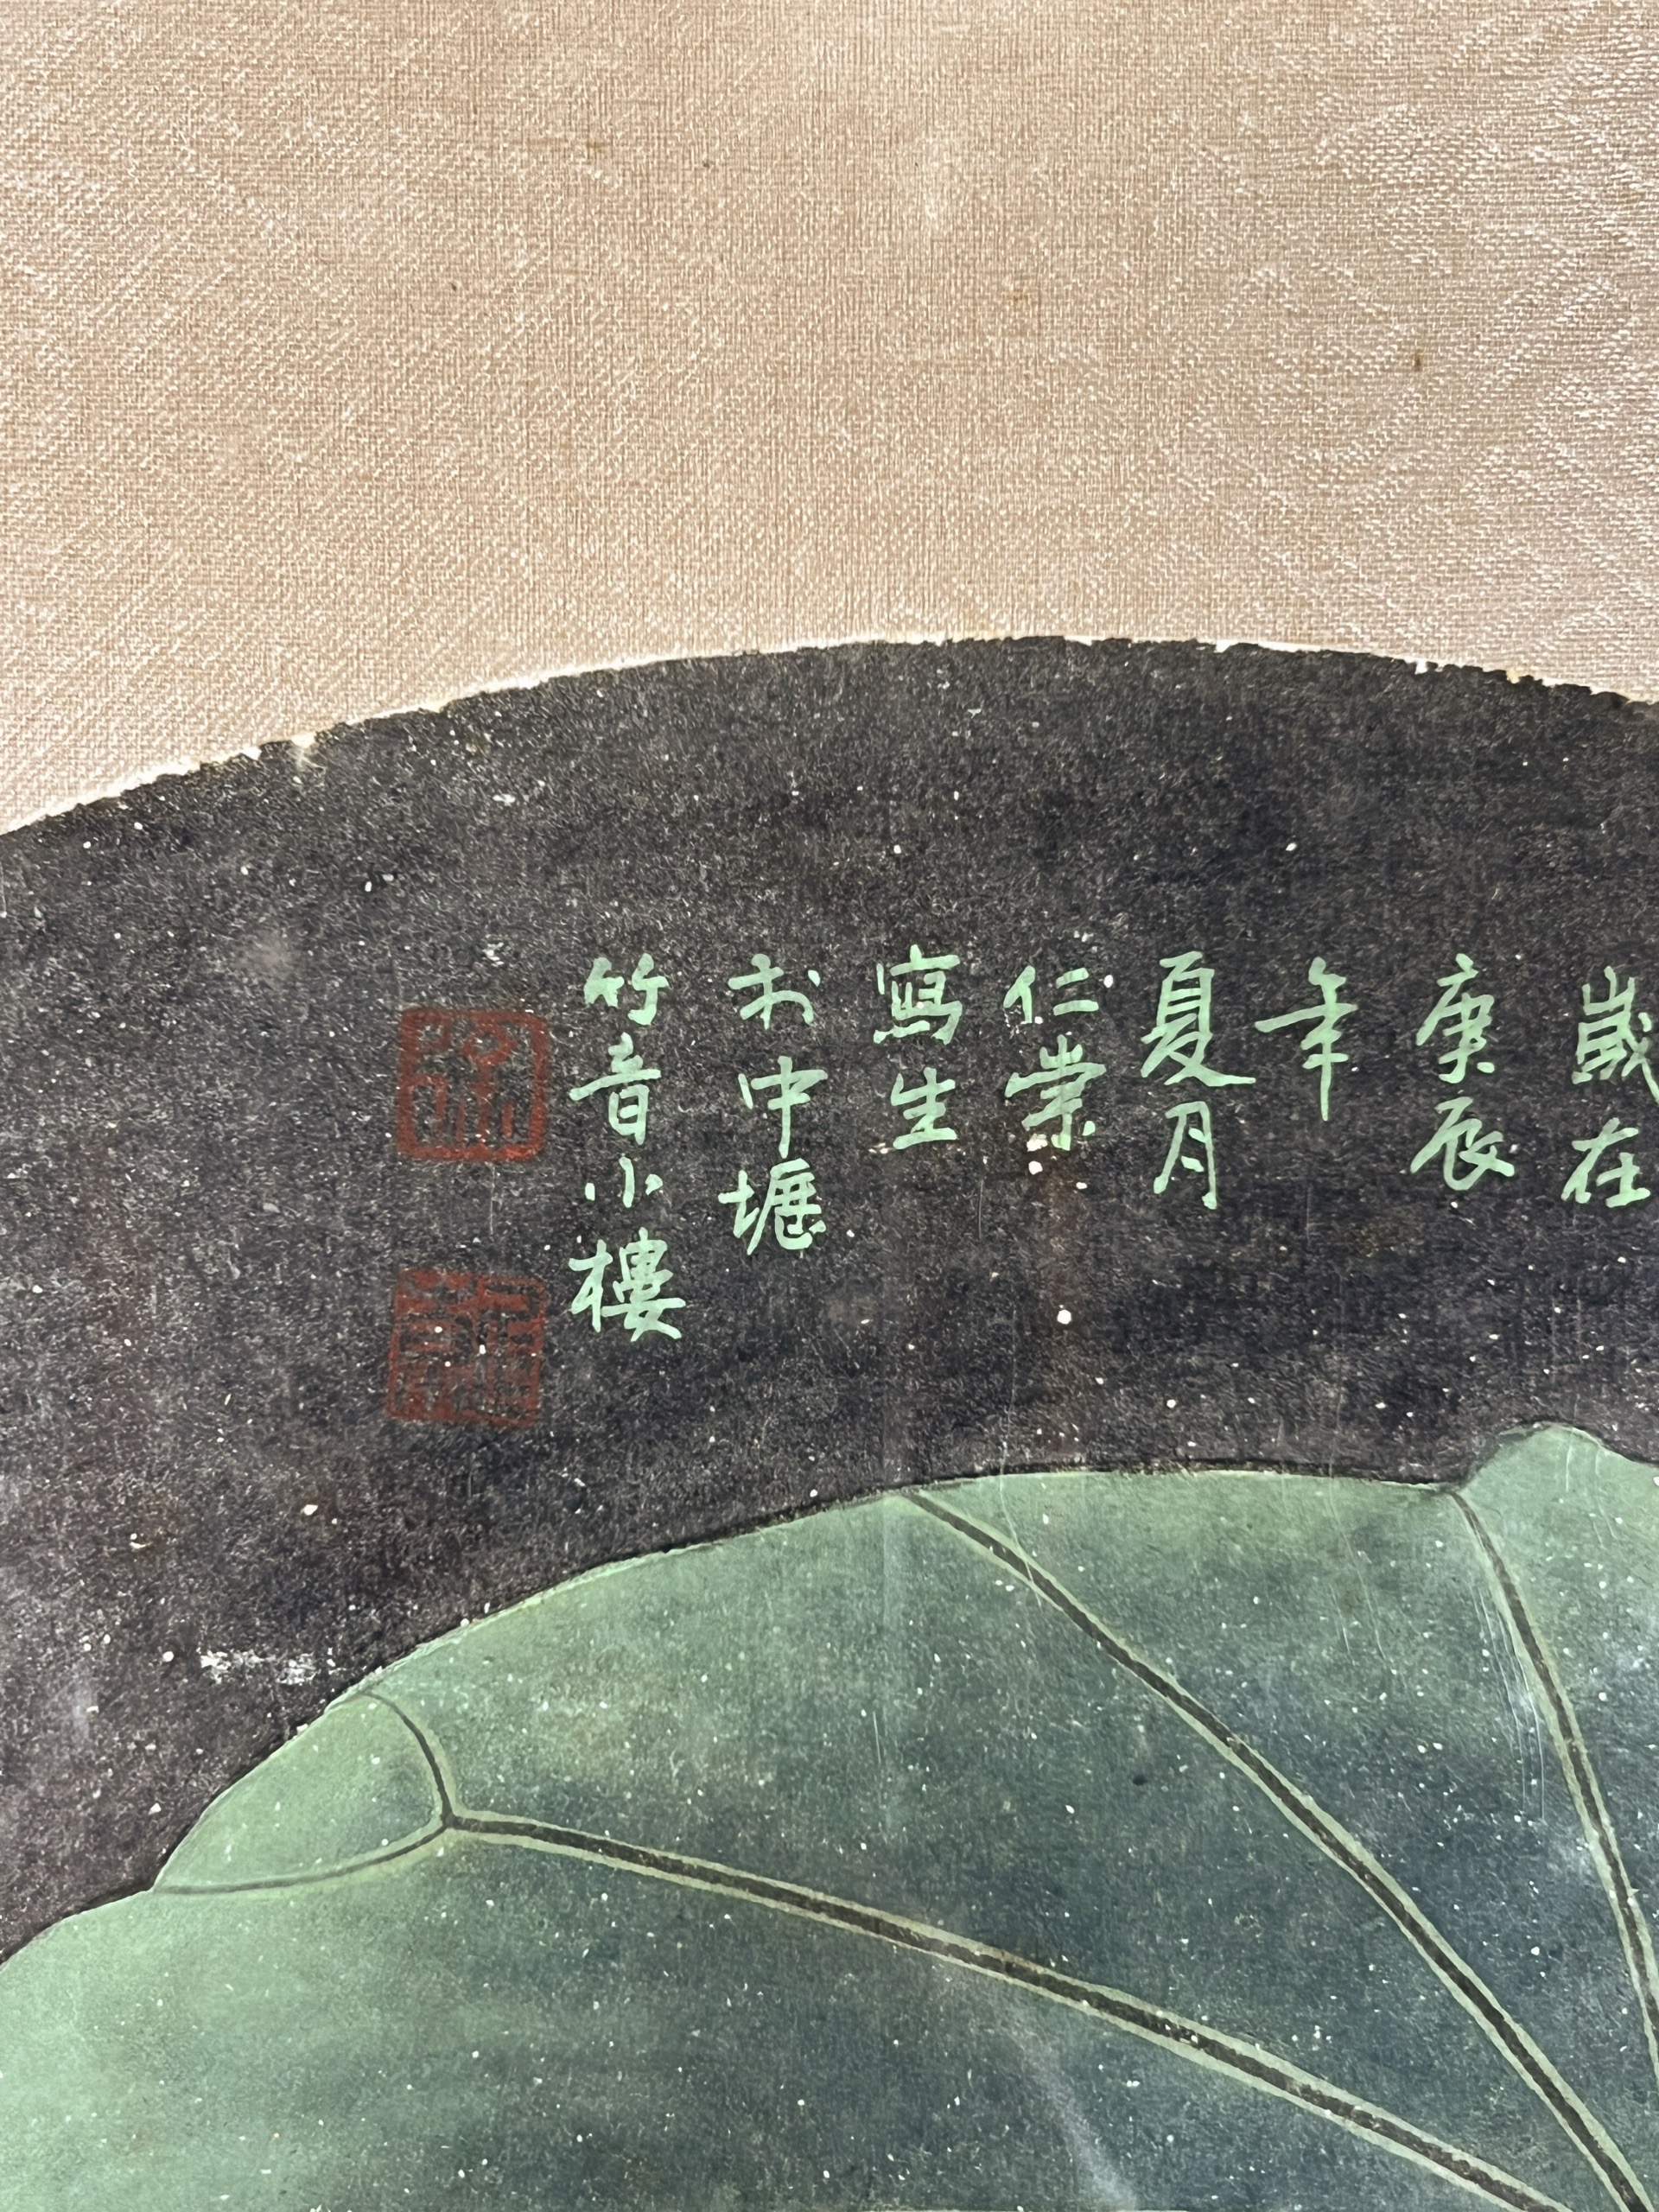 歲在
庚辰
年
夏月
仁崇
寫生
於中堰
竹音小樓